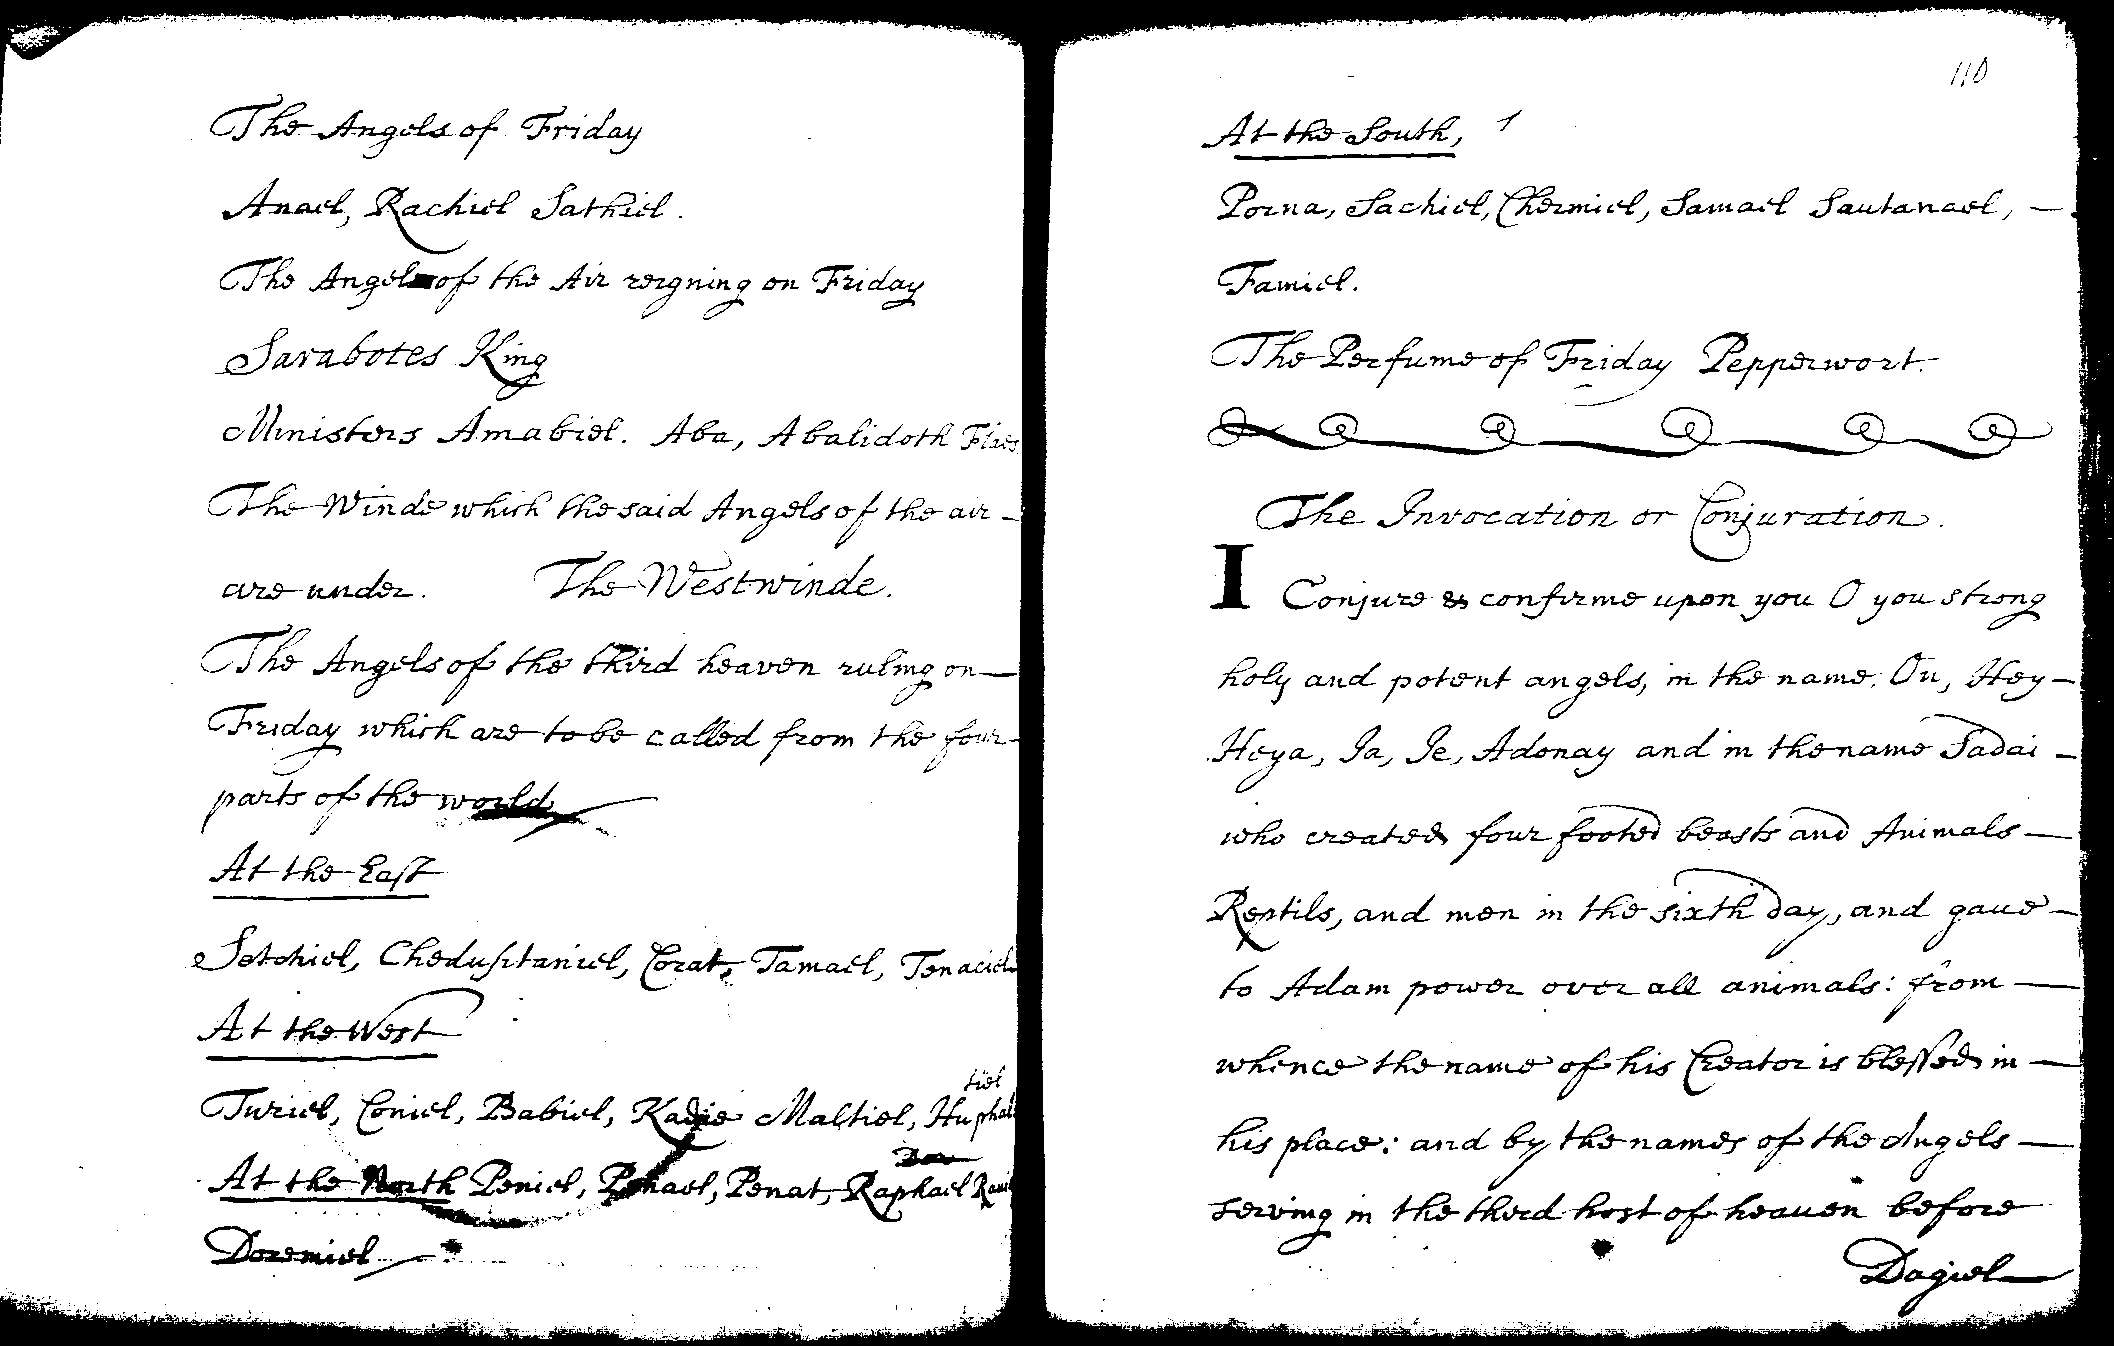 The Angels of Friday
Anael, Rachiel Sathiel.
The Angel of the Air reigning on Friday
Sarabotes King
Ministers Amabiel. Aba, Abalidoth Flaes
The Winde which the said Angels of the air
are under. The Westwinde.
The Angels of the third heaven ruling on
Friday which are to be called from the four
parts of the world
At the East
Setchiel, Chedusitaniel, Corat, Tamael, Tenaciel
At the West
Turiel, Coniel, Babiel, Kadie Maltiel, Huphaltiel
At the North Peniel, Penael, Penat, Raphael
Doremiel
110
At the South,
Porna, Sachiel, Chermiel, Samael Sautanael,
Famiel.
The Perfume of Friday Pepperwort.
The Invocation or Conjuration.
I Conjure & confirme upon you O you strong
holy and potent angels, in the name, On, Hey
Heya, Ja, Je, Adonay and in the name Sadai
who created four footed beasts and Animals
Reptils, and men in the sixth day, and gave
to Adam power over all animals: from
whence the name of his Creator is blessed in
his place: and by the names of the Angels
serving in the third host of heaven before
Dagiel